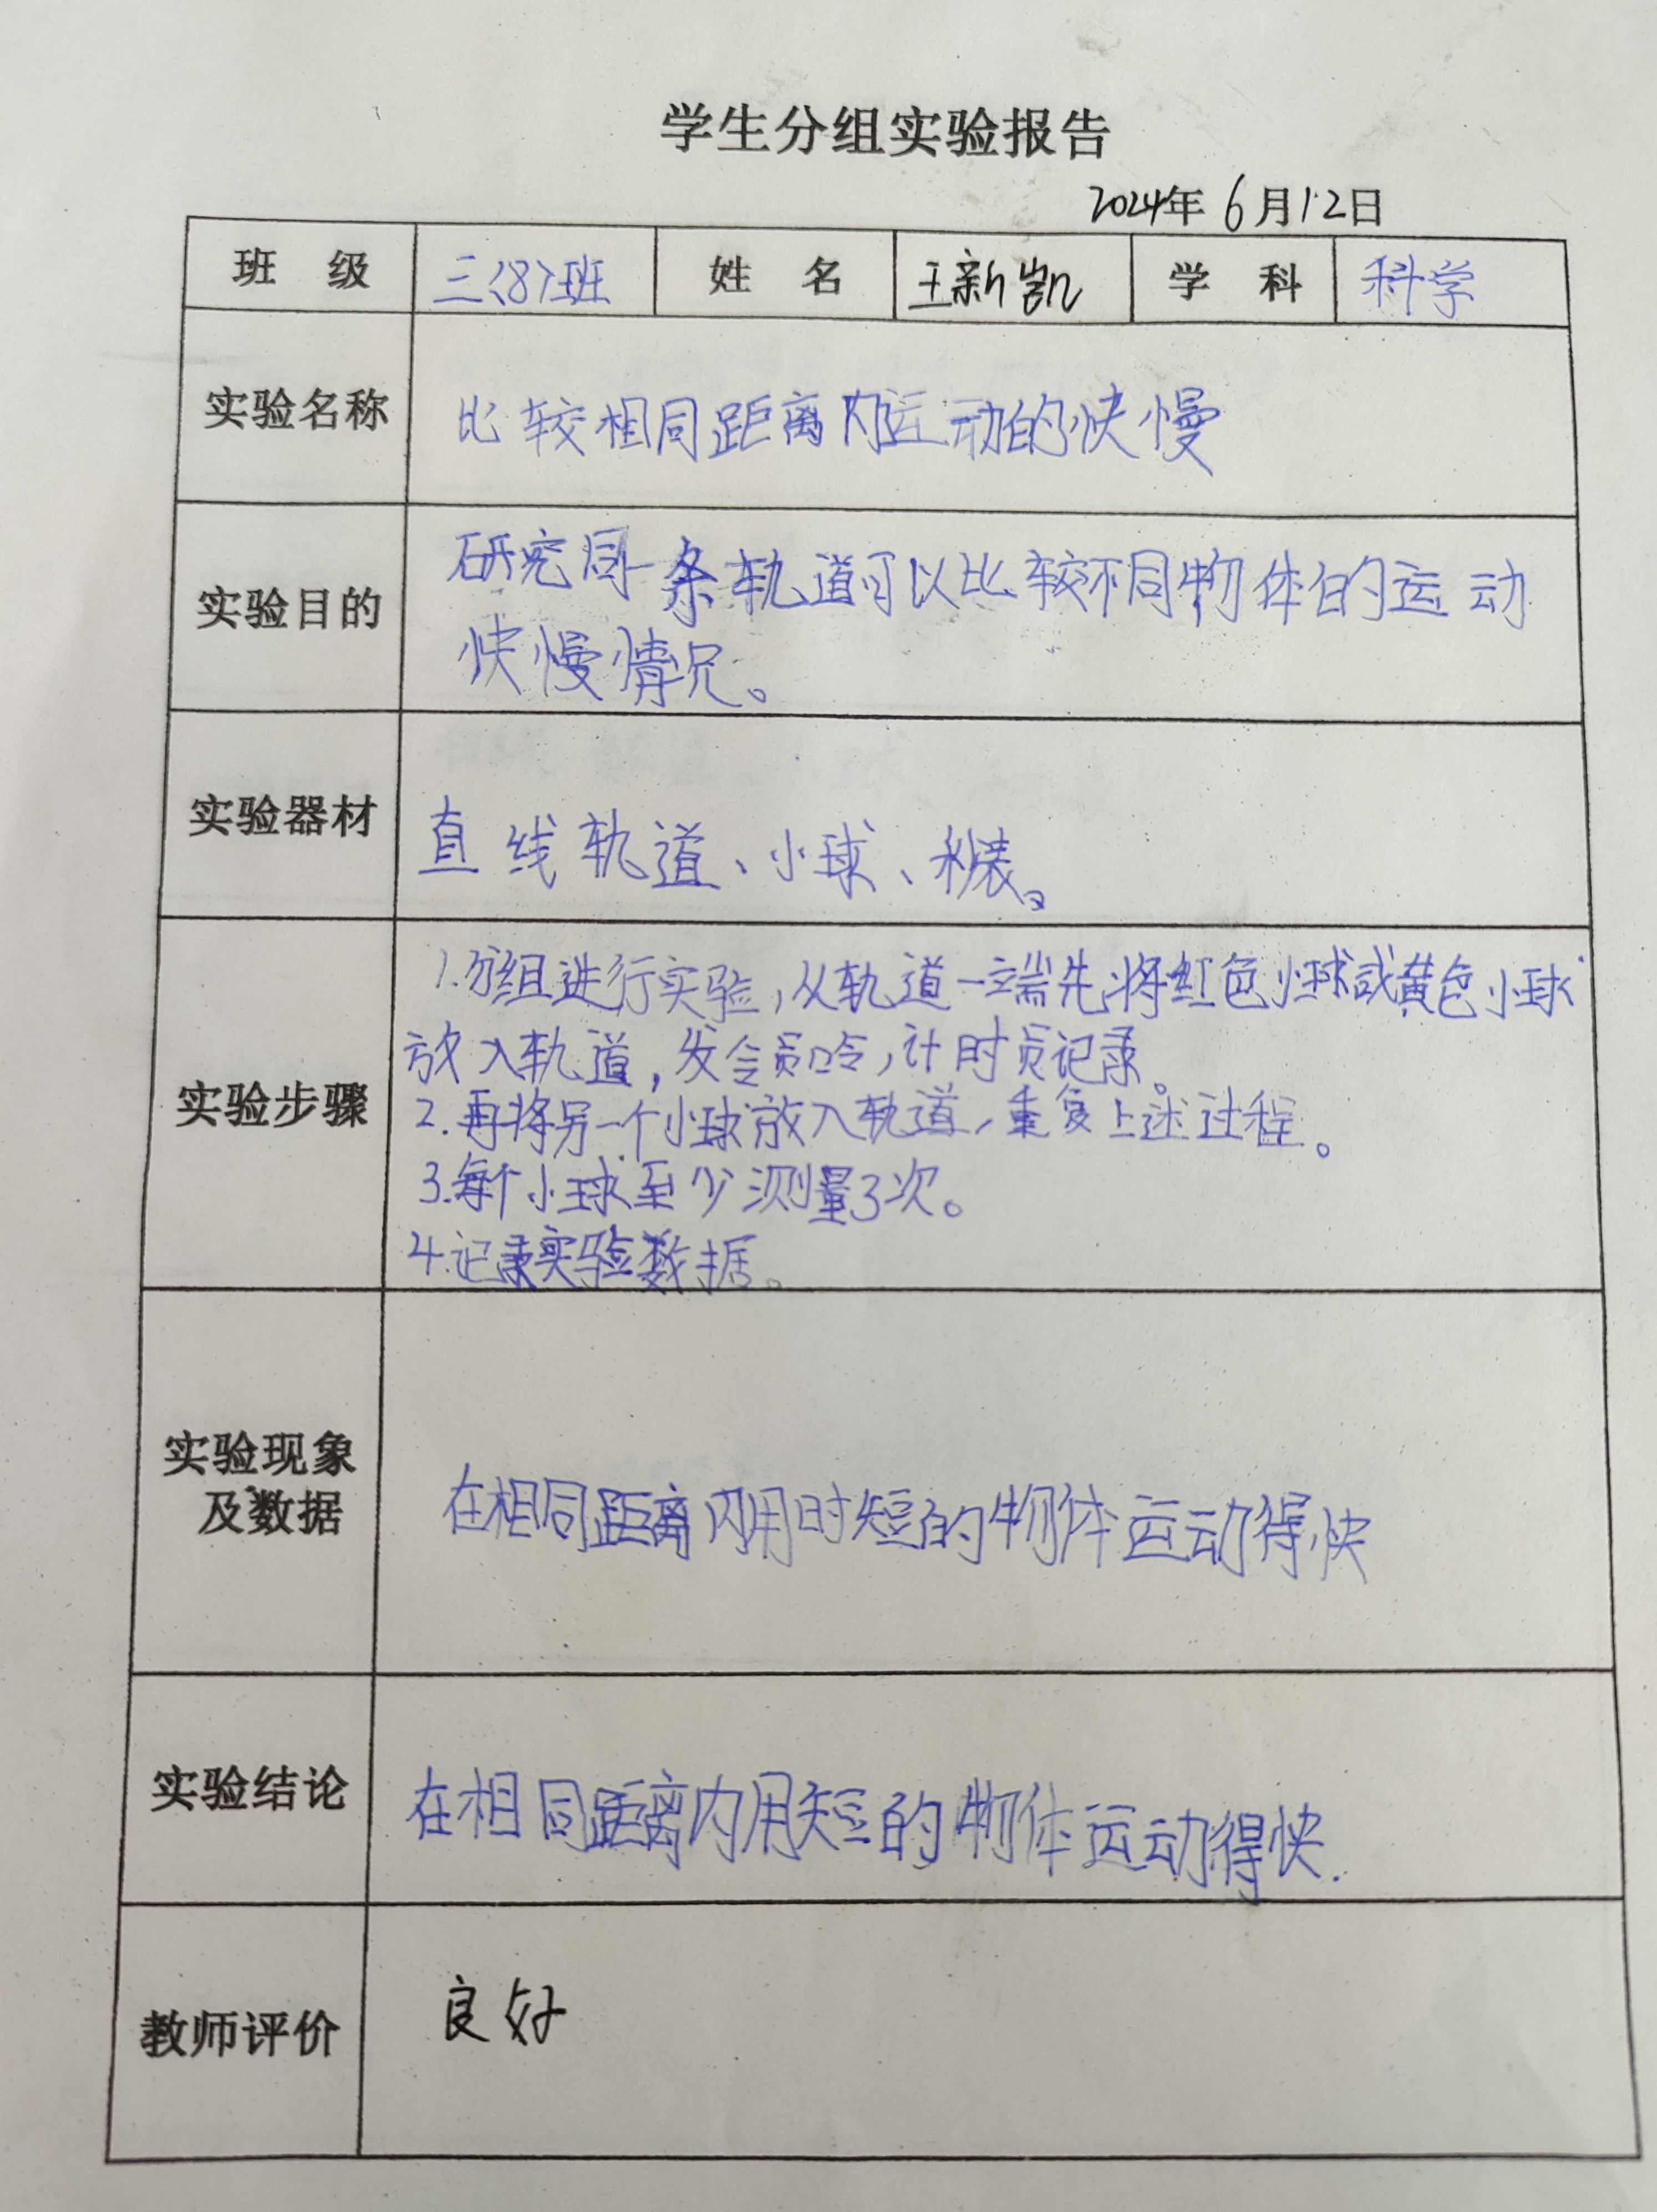 学生分组实验报告
2024年6月12日
班 级 三〈8〉班 姓 名 王新凯 学 科 科学
实验名称 比较相同距离内运动的快慢
实验目的 研究同一条轨道可以比较不同物体的运动
快慢情况。
实验器材 直线轨道、小球、秒表。
实验步骤
1.分组进行实验,从轨道一端先将红色小球或黄色小球
放入轨道,发令员口令,计时员记录。
2.再将另一个小球放入轨道,重复上述过程。
3.每个小球至少测量3次。
4.记录实验数据。
实验现象
及数据
在相同距离内用时短的物体运动得快
实验结论 在相同距离内用短的物体运动得快.
教师评价 良好